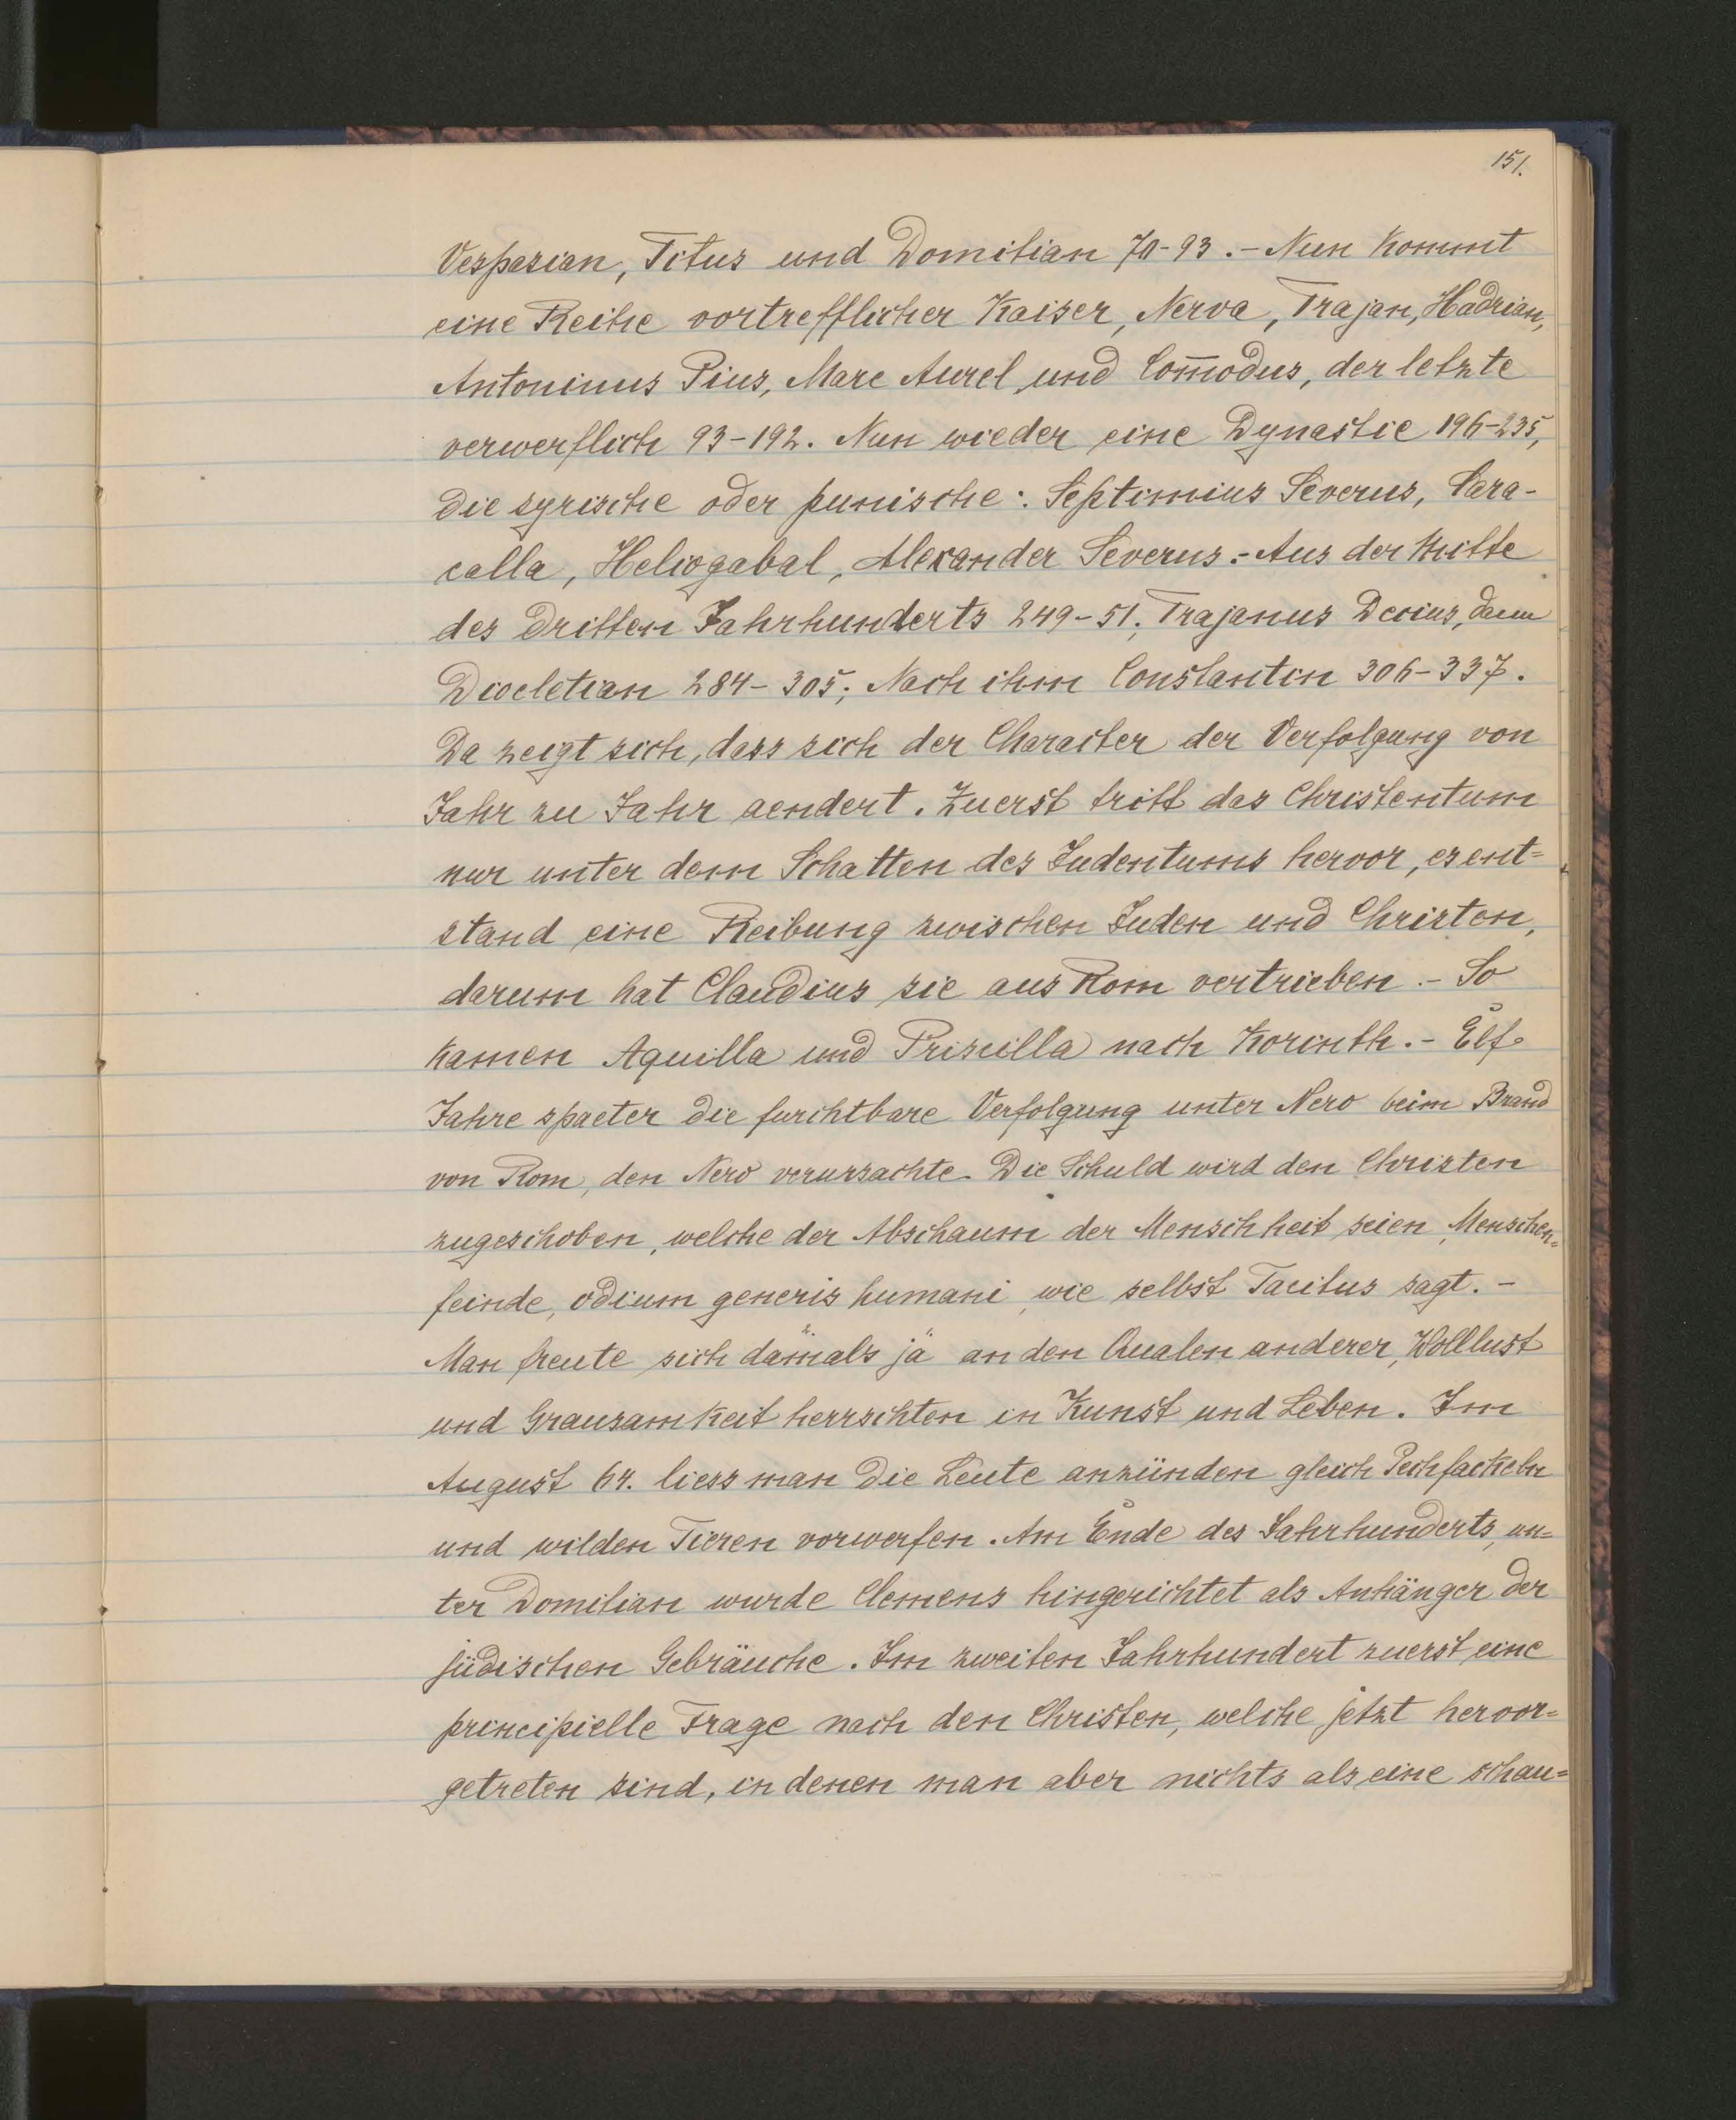 151.
Vespasian, Titus und Domitian 70-93.- Nun kommt
eine Reihe vortrefflicher Kaiser, Nerva, Trajan, Hadrian,
Antoninus Pius, Marc Aurel und Com̅odus, der letzte
verwerflich 93-192. Nun wieder eine Dynastie 196-235,
die syrische oder punische: Septimius Severus, Cara-
calla, Heliogabal, Alexander Severus.- Aus der Mitte
des dritten Jahrhunderts 249-51. Trajanus Decius, dann
Diocletian 284-305; Nach ihm Constantin 306-337.
Da zeigt sich, dass sich der Character der Verfolgung von
Jahr zu Jahr aendert. Zuerst tritt das Christentum
nur unter dem Schatten des Judentums hervor, es ent=
stand eine Reibung zwischen Juden und Christen,
darum hat Claudius sie aus Rom vertrieben.- So
kamen Aquilla und Priscilla nach Korinth.- Elf
Jahre spaeter die furchtbare Verfolgung unter Nero beim Brand
von Rom, den Nero verursachte. Die Schuld wird den Christen
zugeschoben, welche der Abschaum der Menschheit seien, Menschen=
feinde, odium generis humani, wie selbst Tacitus sagt.-
Man freute sich damals ja an den Qualen anderer, Wollust
und Grausamkeit herrschten in Kunst und Leben. Im
August 64. liess man die Leute anzünden gleich Pechfackeln
und wilden Tieren vorwerfen. Am Ende des Jahrhunderts, un=
ter Domitian wurde Clemens hingerichtet als Anhänger der
jüdischen Gebräuche. Im zweiten Jahrhundert zuerst eine
principielle Frage nach den Christen, welche jetzt hervor=
getreten sind, in denen man aber nichts als eine schau=